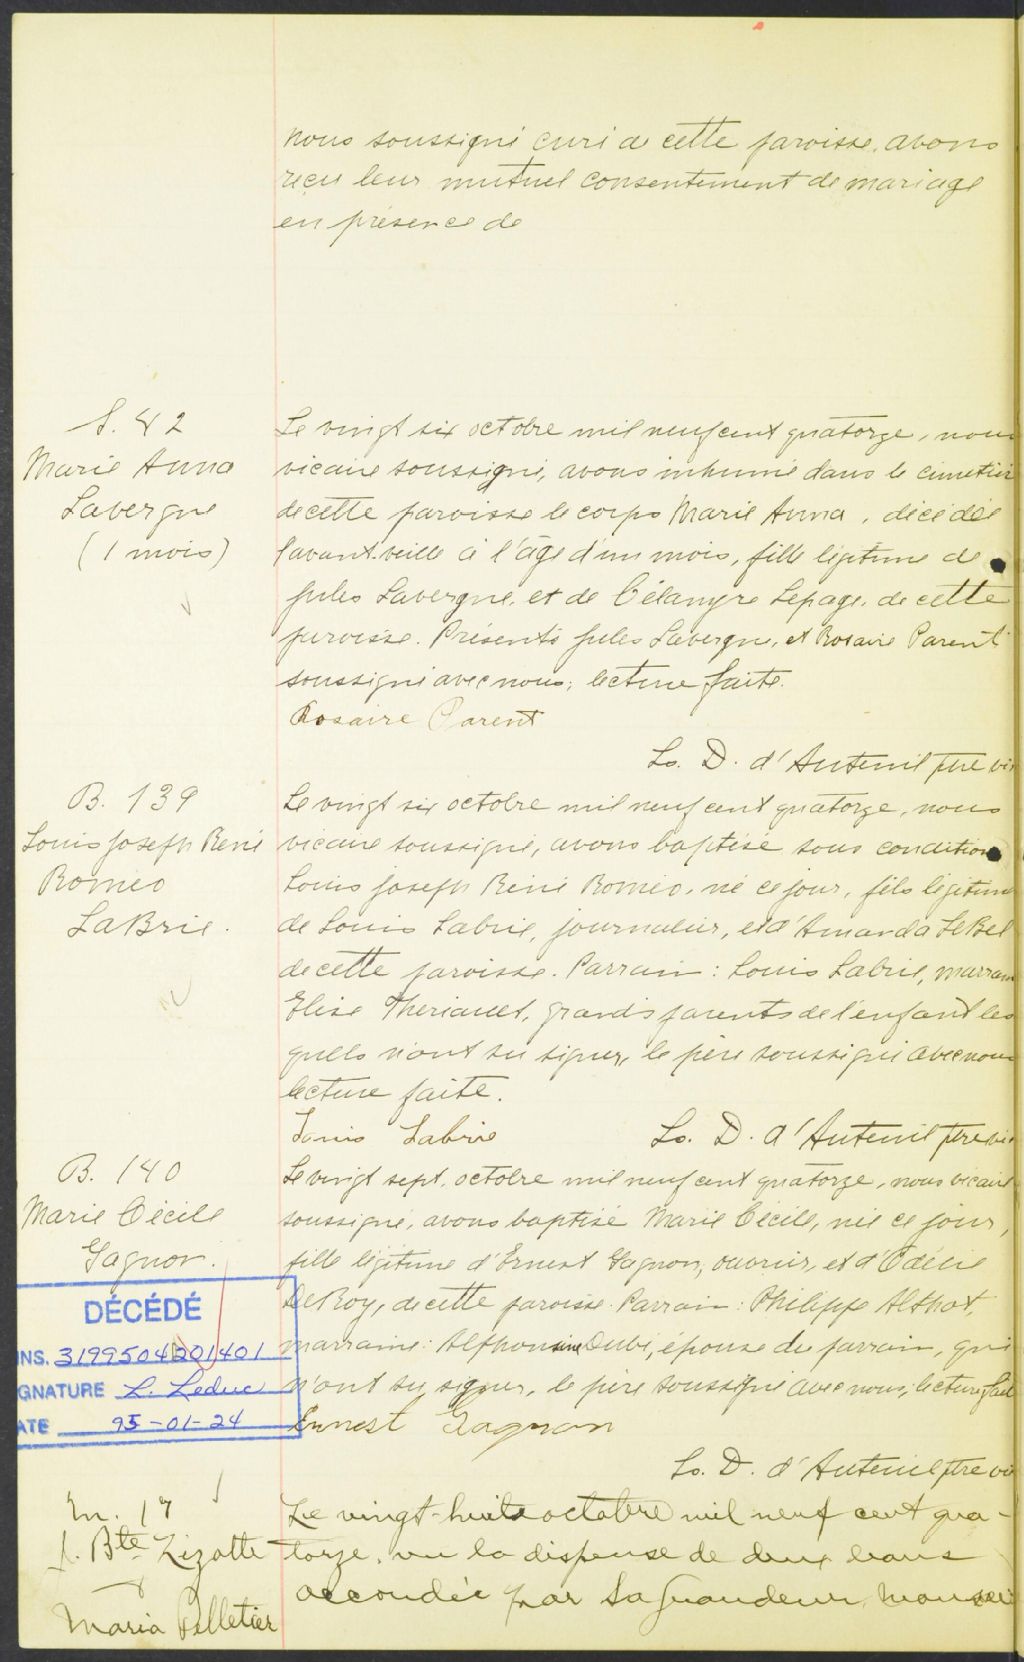 nous soussigné curé de cette paroisse, avons
reçu leur mutuel consentement de mariage
en présence de
S. 82
Marie Anna
Lavergne
(1 mois)
Le vingt six octobre mil neuf cent quatorze, nous
vicaire soussigné, avons inhumé dans le cimetièr
de cette paroisse le corps Marie Anna, décédée
l'avant-veille à l'âge d'un mois, fille légitime de
Jules Lavergne, et de Célanyre Lepage, de cette
paroisse. Présents Jules Lavergne, et Rosaire Parent
soussigné avec nous, lecture faite.
Rosaire Parent
Ls. D. d'Auteuil ptre vic
B. 139
Louis Joseph René
Roméo
LaBrie.
Le vingt six octobre mil neuf cent quatorze, nous
vicaire soussigné, avons baptisé sous condition
Louis Joseph René Roméo, né ce jour, fils légitime
de Louis Labrie, journalier, et d'Amanda LeBel
de cette paroisse. Parrain : Louis Labrie, marraine
Elise Theriault, grands parents de l'enfant les
quels n'ont su signer, le père soussigné avec nous
lecture faite.
Louis Labrie
Ls. D. d'Auteuil ptre vic
B. 140
Marie Cécile
Gagnon.
Le vingt sept octobre mil neuf cent quatorze, nous vicaire
soussigné, avons baptisé Marie Cécile, née ce jour,
fille légitime d'Ernest Gagnon, ouvrier, et d'Odélie
DeRoy, de cette paroisse. Parrain : Philippe Althot,
marraine : Alphonsine Dubé, épouse du parrain, qui
n'ont su signer, le père soussigné avec nous, lecture fait
Ernest Gagnon
Ls. D. d'Auteuil ptre vic
DÉCÉDÉ
INS. 3199504201401
GNATURE L. Leduc
ATE 95-01-24
m. 17
J. Bte Lizotte
Maria Pelletier
Le vingt-huit octobre mil neuf cent qua-
torze, vu la dispense de deux bans
accordée par Sa Grandeur, Monsei